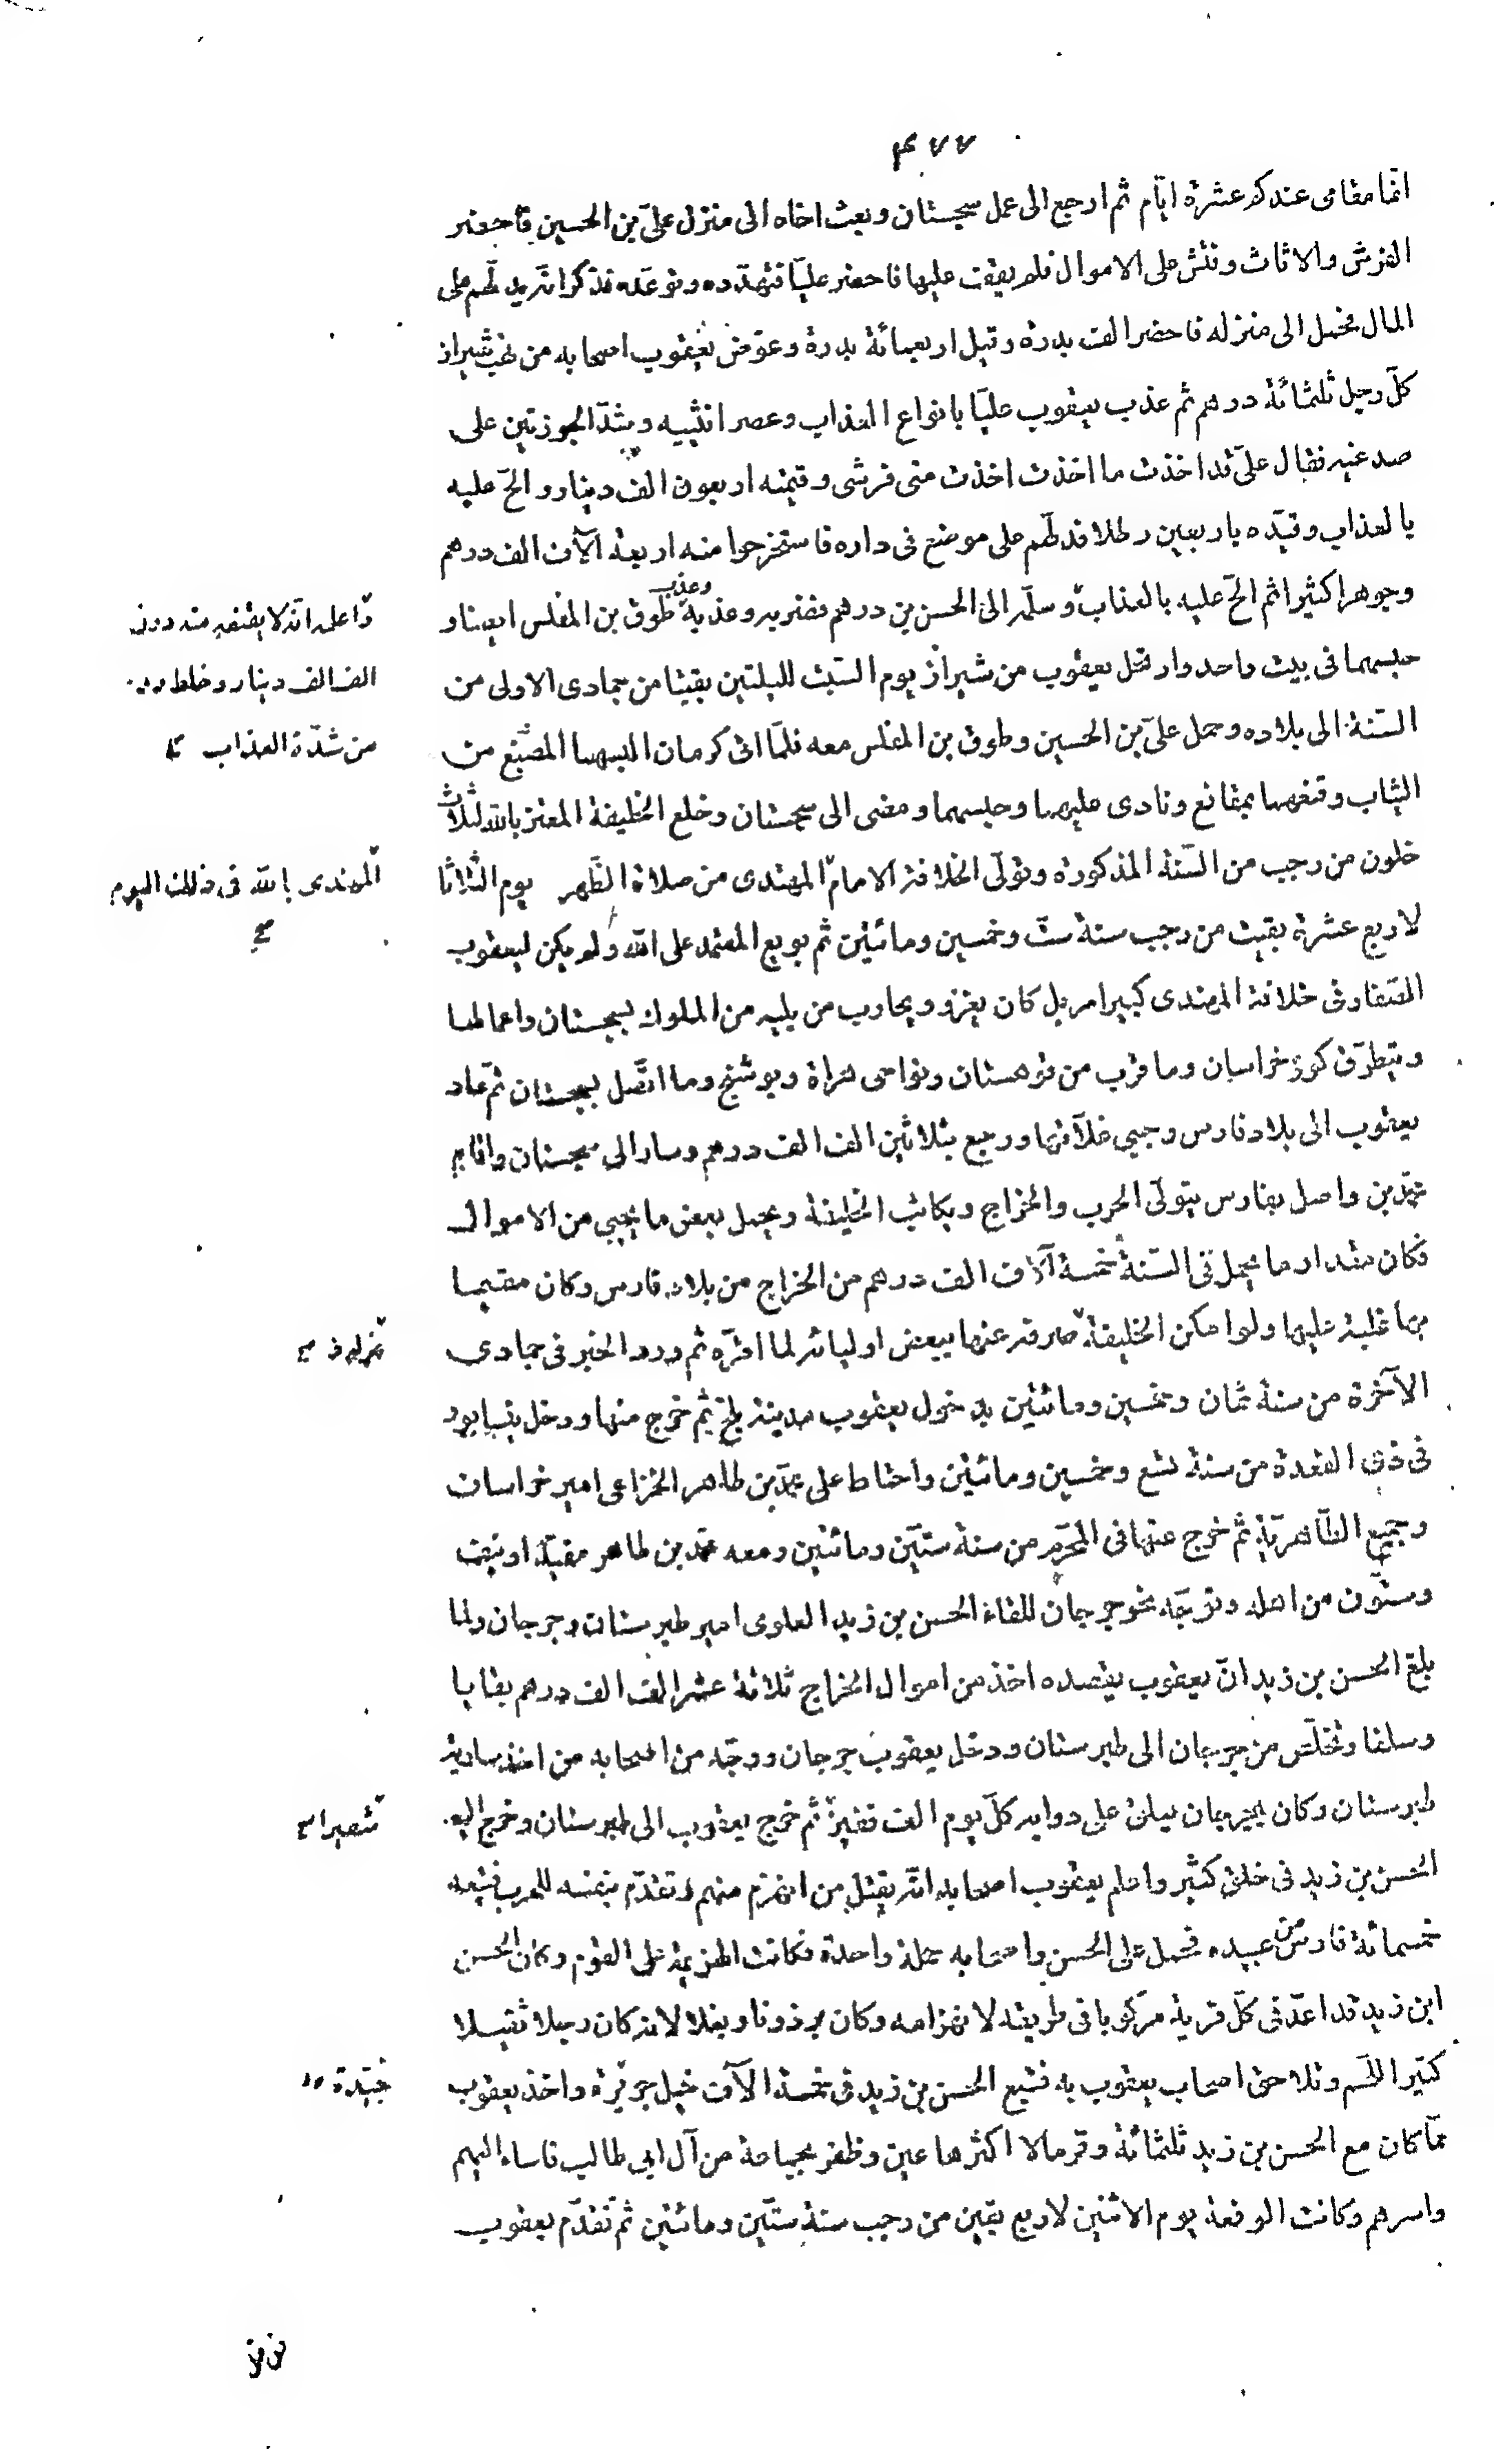 ٤٧٧
انما مقامى عندك عشرة ايّام ثم ارجع الى عمل سجستان وبعث اخاه الى منزل علىّ بن الحسين فاحضر
الفرش والاثاث وفتش على الاموال فلم يقف عليها فاحضر عليّا فتهدّده وتوعّده فذكر انه يدلّهم على
المال فحمل الى منزله فاحضر الف بدرة وقيل اربعمائة بدرة وعوّض يعقوب اصحابه من نهب شيراز
كلّ رجل ثلثمائة درهم ثم عذب يعقوب عليّا بانواع العذاب وعصر انثييه وشدّ الجوزتين على
صدغيه فقال علىّ قد اخذت ما اخذت اخذت منى فرشى وقيمته اربعون الف دينار والحّ عليه
بالعذاب وقيّده باربعين رطلا فدلّهم على موضع فى داره فاستخرجوا منه اربعة آلاف الف درهم
وجوهرا كثيرا ثم الحّ عليه بالعذاب وسلّمه الى الحسن بن درهم فضربه وعذبه وعذب طوق بن المغلس ايضا و
واعلمه انه لا يقنعه منه دون
الف الف دينار وخلط
من شدّة العذاب
حبسهما فى بيت واحد وارتحل يعقوب من شيراز يوم السّبت لليلتين بقيتا من جمادى الاولى من
السّنة الى بلاده وحمل علىّ بن الحسين وطوق بن المغلس معه فلمّا اتى كرمان البسهما المصبّغ من
الثياب وقنعهما بمقانع ونادى عليهما وحبسهما ومضى الى سجستان وخلع الخليفة المعتز بالله لثلاث
خلون من رجب من السّنة المذكورة وتولّى الخلافة الامام المهتدى من صلاة الظّهر يوم الثلاثا
المهتدى بالله فى ذلك اليوم
صح
لاربع عشرة بقيت من رجب سنة ستّ وخمسين ومائتين ثم بويع المعتمد على الله ولم يكن ليعقوب
الصّفار فى خلافة المهتدى كبير امر بل كان يغزو ويحارب من يليه من الملوك بسجستان واعمالها
ويتطرّق كور خراسان وما قرب من قوهستان ونواحى هراة وبوشنج وما اتّصل بسجستان ثم عاد
يعقوب الى بلاد فارس وجبى غلاتها ورجع بثلاثين الف الف درهم وسار الى سجستان واقام
محمّد بن واصل بفارس يتولّى الحرب والخراج ويكاتب الخليفة ويحمل بعض ما يجبى من الاموال
فكان مقدار ما يحمل فى السّنة خمسة آلاف الف درهم من الخراج من بلاد فارس وكان مقيما
بها غلبة عليها ولو امكن الخليفة صرفه عنها ببعض اوليائه لما اقرّه ثم ورد الخبر فى جمادى
الآخرة من سنة ثمان وخمسين ومائتين بدخول يعقوب مدينة بلخ ثم خرج منها ودخل نيسابور
فى ذى القعدة من سنة تسع وخمسين ومائتين واحتاط على محمّد بن طاهر الخزاعى امير خراسان
وجميع الطّاهريّة ثم خرج عنها فى المحرّم من سنة ستّين ومائتين ومعه محمّد بن طاهر مقيّدا ونيف
وستّون من اهله وتوجّه نحو جرجان للقاء الحسن بن زيد العلوى امير طبرستان وجرجان ولما
بلغ الحسن بن زيد انّ يعقوب يقصده اخذ من اموال الخراج ثلاثة عشر الف الف درهم بقايا
وسلفا وتخلّص من جرجان الى طبرستان ودخل يعقوب جرجان ووجّه من اصحابه من اخذ سارية
طبرستان وكان بجرجان يعلق على دوابه كلّ يوم الف قفيز ثم خرج يعقوب الى طبرستان وخرج اليه
شعيرا صح
الحسن بن زيد فى خلق كثير واعلم يعقوب اصحابه انّه يقتل من انهزم منهم وتقدّم بنفسه للحرب فتبعه
خمسمائة فارس من عبيده فحمل على الحسن واصحابه حملة واحدة فكانت الهزيمة على القوم وكان الحسن
ابن زيد قد اعدّ فى كلّ قرية مركوبا فى طريقه لانهزامه وكان برذونا وبغلا لانه كان رجلا ثقيلا
كثير اللحم وتلاحق اصحاب يعقوب به فتبع الحسن بن زيد فى خمسة الآف خيل جريرة واخذ يعقوب
ممّا كان مع الحسن بن زيد ثلثمائة وقر مالا اكثرها عين وظفر بجماعة من آل ابى طالب فاساء اليهم
واسرهم وكانت الوقعة يوم الاثنين لاربع بقين من رجب سنة ستّين ومائتين ثم تقدّم يعقوب